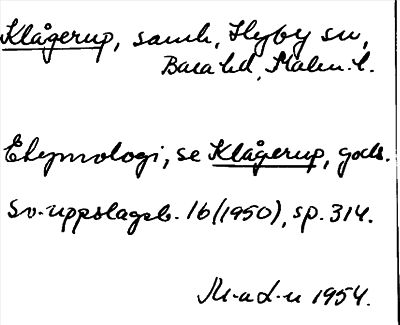 Klågerup, samh, Hyby sn,
Bara hd, Malm. l.
Etymologi, se Klågerup, gods.
Sv. uppslagsb. 16 (1950), sp. 314.
M-a L-n 1954.